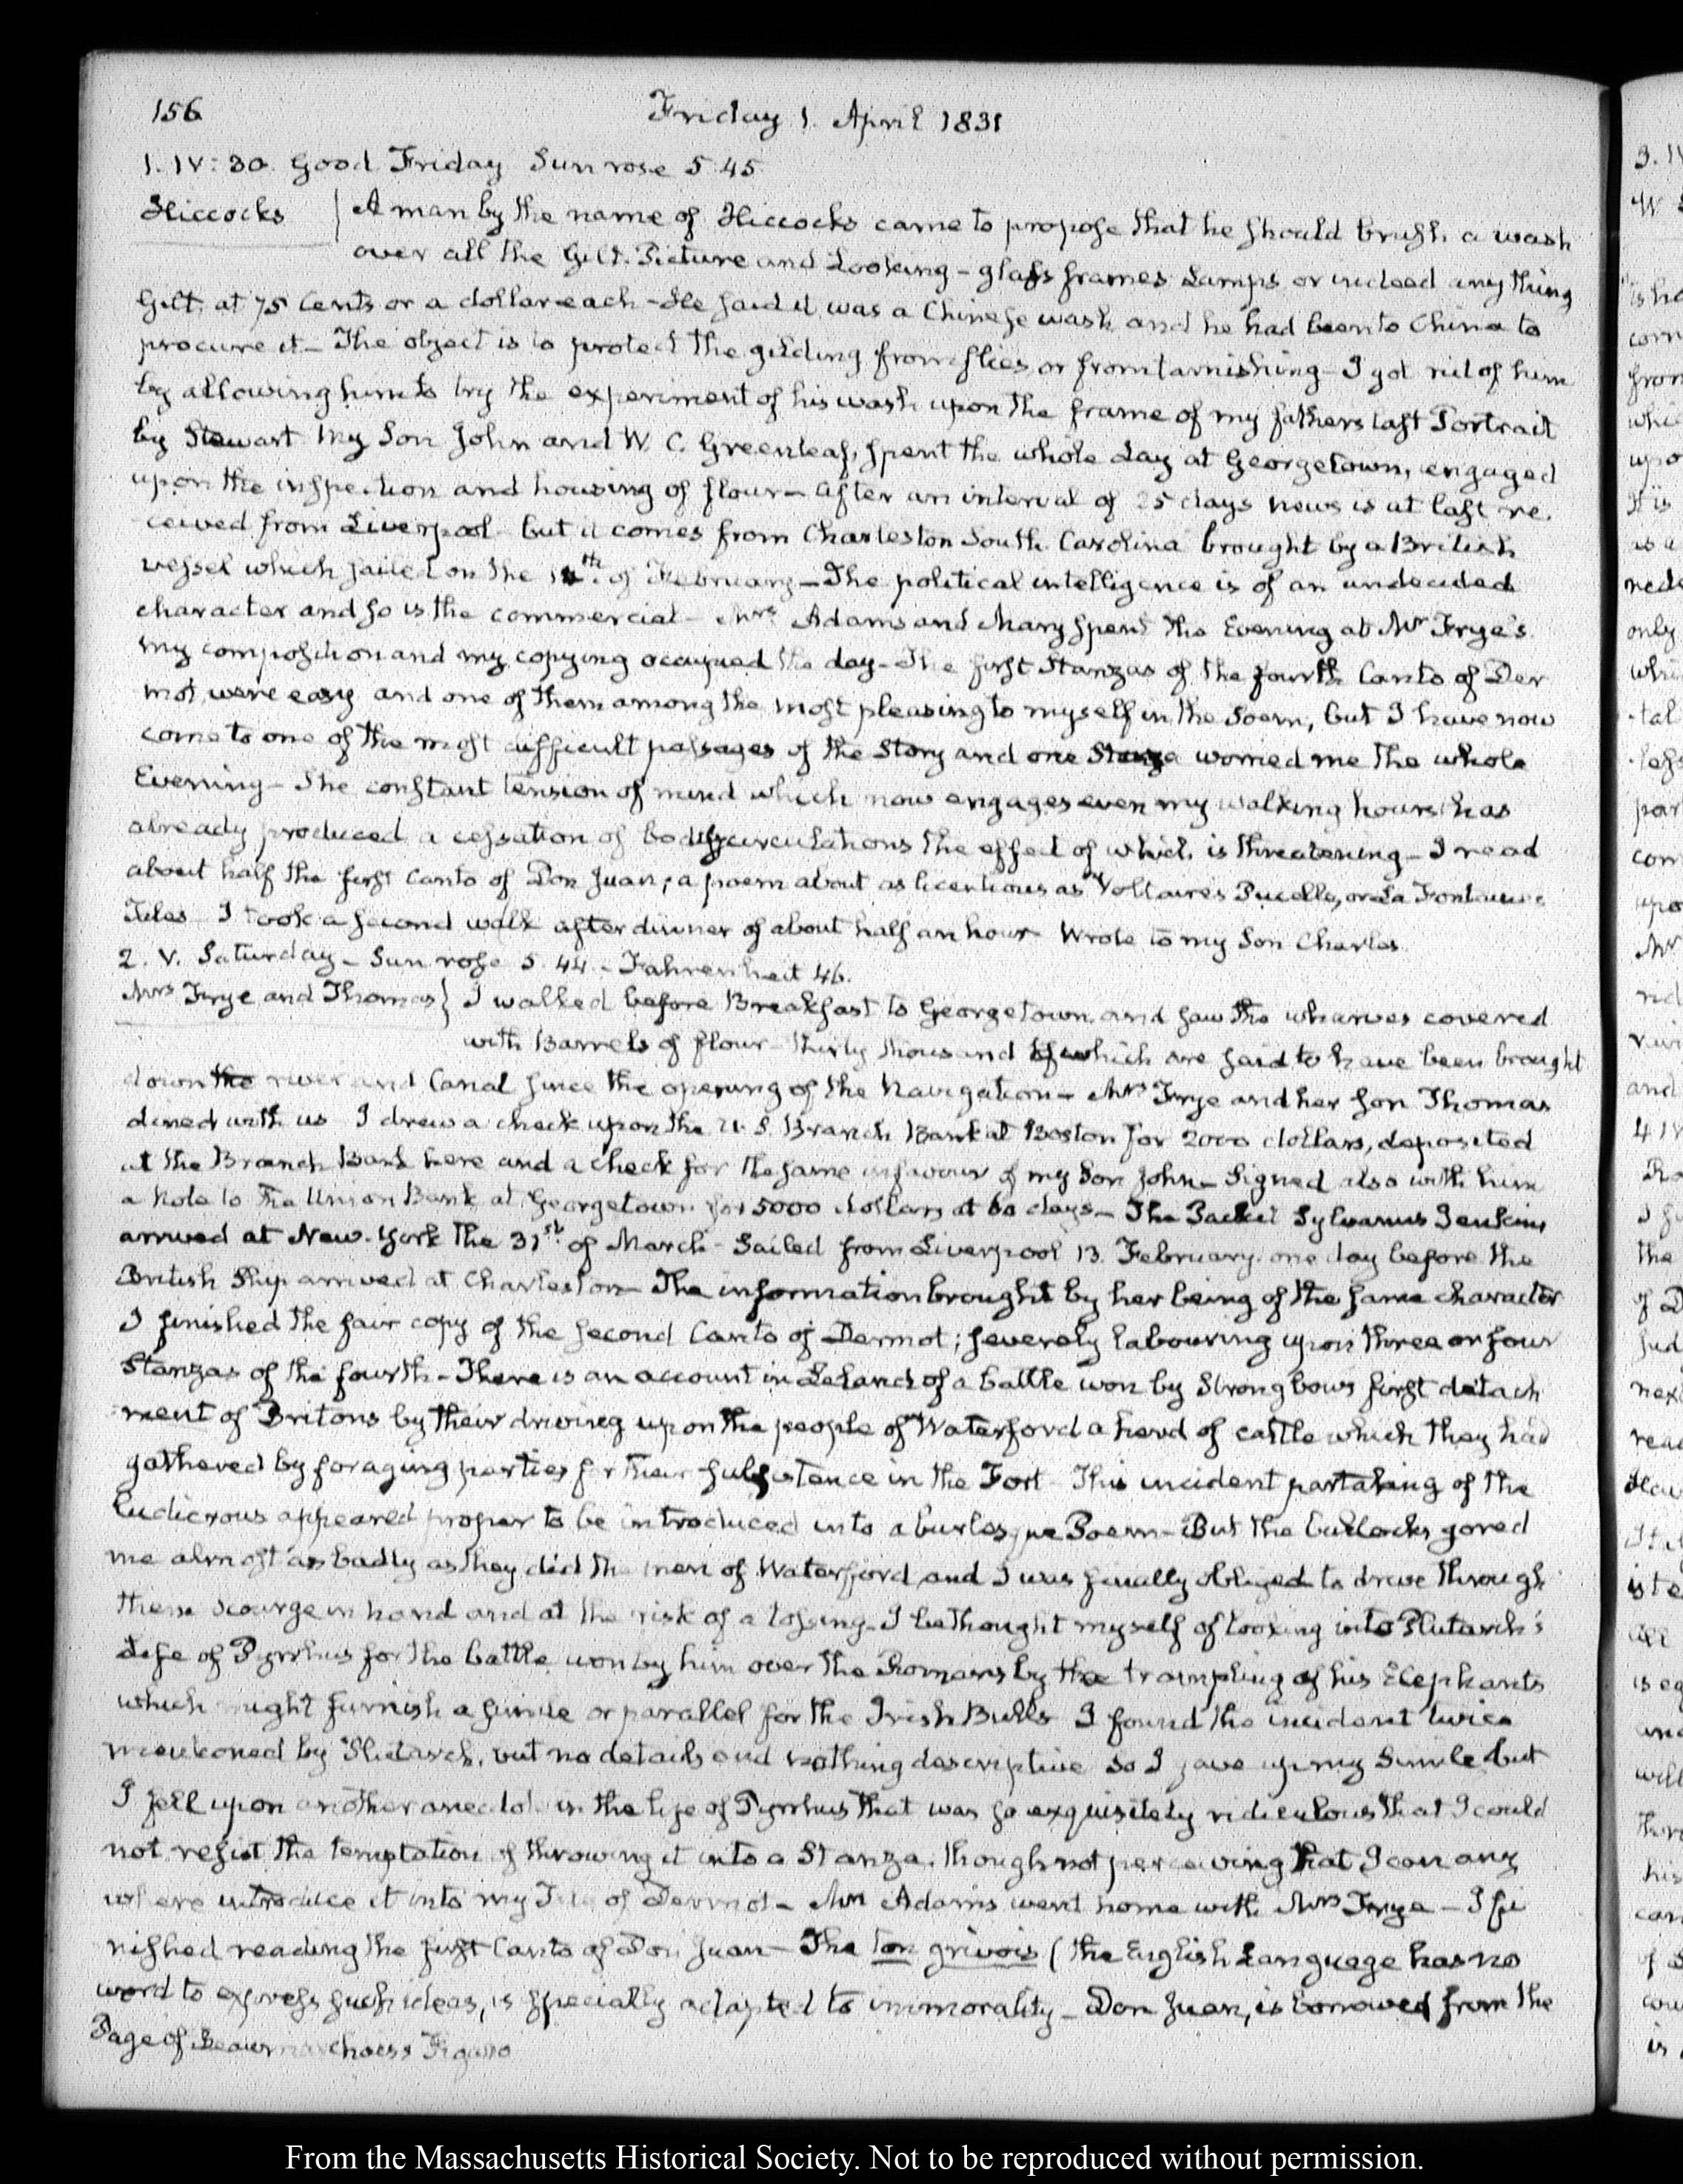 156
Friday 1. April 1831
1. IV: 30. Good Friday Sun rose 5.45
Hiccocks } A man by the name of Hiccocks came to propose that he should brush a wash
over all the Gilt. Picture and Looking-glass frames Lamps or indeed any thing
Gilt, at 75 Cents or a dollar each - He said it was a Chinese wash and he had been to China to
procure it - The object is to protect the gilding from flies or from tarnishing - I got rid of him
by allowing him to try the experiment of his wash upon the frame of my fathers last Portrait
by Stewart My Son John and W. C. Greenleaf, spent the whole day at Georgetown, engaged
upon the inspection and housing of flour - After an interval of 25 days news is at last re-
ceived from Liverpool but it comes from Charleston South Carolina brought by a British
vessel which sailed on the th. of February - The political intelligence is of an undecided
character and so is the commercial - Mrs. Adams and Mary spent the Evening at Mr Frye's.
My composition and my copying occupied the day - The first Stanzas of the fourth Canto of Der
mot, were easy and one of them among the most pleasing to myself in the Poem, but I have now
come to one of the most difficult passages of the Story and one Stanza worried me the whole
Evening - The constant tension of mind which now engages even my walking hours has
already produced a cessation of bodily circulations the effect of which is threatening - I read
about half the first Canto of Don Juan; a poem about as licentious as Voltaire's Pucelle, or La Fontaine's
Tales I took a second walk after dinner of about half an hour Wrote to my Son Charles.
2. V. Saturday - Sun rose 5.44 - Fahrenheit 46.
Mrs Frye and Thomas } I walked before Breakfast to Georgetown, and saw the wharves covered
with Barrels of flour - thirty thousand of which are said to have been brought
down the river and Canal since the opening of the Navigation - Mrs Frye and her Son Thomas
dined with us I drew a check upon the U.S. Branch Bank at Boston for 2000 dollars, deposited
at the Branch Bank here and a check for the same in favour of my Son John - Signed also with him
a Note to the Union Bank at Georgetown for 5000 dollars at 60 days - The Packet Sylvanus Jenkins
arrived at New-York the 31st. of March - Sailed from Liverpool 13. February. one day before the
British Ship arrived at Charleston - The information brought by her being of the same character
I finished the fair copy of the second Canto of Dermot; severely labouring upon three or four
Stanzas of the fourth - There is an account in Leland of a battle won by Strongbows first detach
ment of Britons by their driving upon the people of Waterford a herd of cattle which they had
gathered by foraging parties for their subsistence in the Fort - This incident partaking of the
ludicrous appeared proper to be introduced into a burlesque Poem - But the bullocks gored
me almost as badly as they did the men of Waterford and I was finally obliged to drive through
them scourge in hand and at the risk of a tossing - I bethought myself of looking into Plutarch's
Life of Pyrrhus for the battle won by him over the Romans by the trampling of his Elephants
which might furnish a simile or parallel for the Irish Bulls I found the incident twice
mentioned by Plutarch, but no details and nothing descriptive So I gave up my Simile but
I fell upon another anecdote in the life of Pyrrhus that was so exquisitely ridiculous that I could
not resist the temptation of throwing it into a Stanza, though not perceiving that I can any
where introduce it into my Tale of Dermot - Mrs Adams went home with Mrs Frye - I fi
nished reading the first Canto of Don Juan - The ton grivois (the English Language has no
word to express such ideas, is specially adapted to immorality - Don Juan, is borrowed from the
Page of Beaumarchais's Figaro
From the Massachusetts Historical Society. Not to be reproduced without permission.